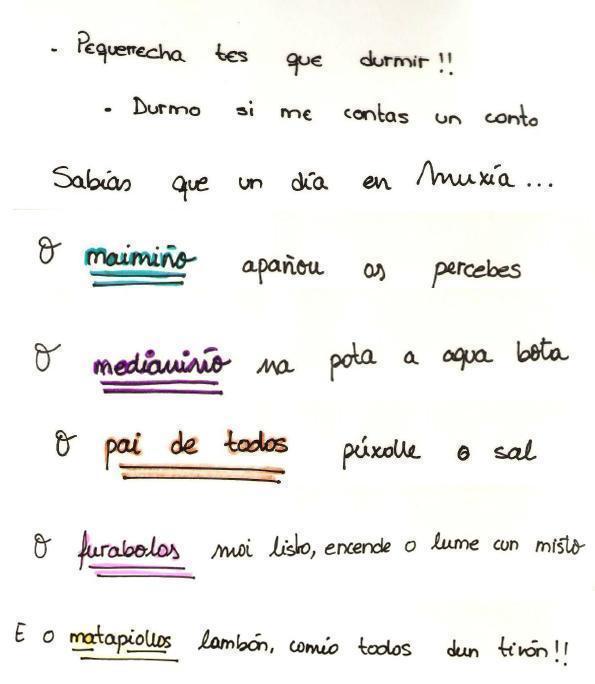 - Pequerrecha tes que durmir!!
- Durmo si me contas un conto
Sabías que un día en Muxía...
O maimiño apañou os percebes
O medianiño na pota a agua bota
O pai de todos púxolle o sal
O furabolos moi listo, encende o lume cun misto
E o matapiollos lambón, comío todos dun tirón!!